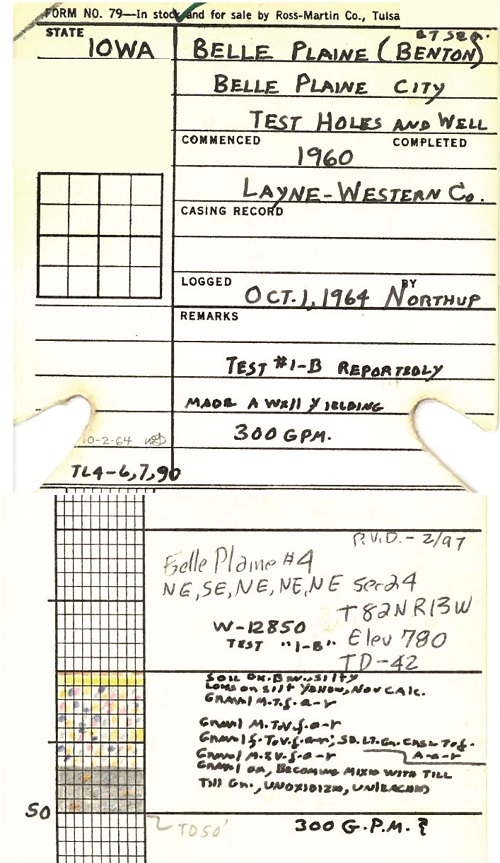 FORM NO. 79—In stock and for sale by Ross-Martin Co., Tulsa
STATE
IOWA
ET SEQ.
BELLE PLAINE (BENTON)
BELLE PLAINE CITY
TEST HOLES AND WELL
COMMENCED COMPLETED
1960
LAYNE-WESTERN CO.
CASING RECORD
LOGGED OCT. 1, 1964 BY NORTHUP
REMARKS
TEST #1-B REPORTEDLY
MADE A WELL YIELDING
300 GPM.
10-2-64
TL4-6,7,90
R.V.D. - 2/97
Belle Plaine #4
NE, SE, NE, NE, NE Sec 24
T82N R13W
W-12850
TEST "1-B" Elev 780
TD-42
SOIL DK. BW. SILTY
LOESS OR SILT YELLOW, NON CALC.
GRAVEL M.T.f. a-r
GRAVEL M. TO V.f. a-r
GRAVEL f. TO V.f. a-r; SD. LT. GR. CRSE TO f.
A-r
GRAVEL M. & V.f. a-r
GRAVEL , BECOMING MIXED WITH TILL
TILL GR., UNOXIDIZED, UNLEACHED
50
TD 50'
300 G.P.M. ?